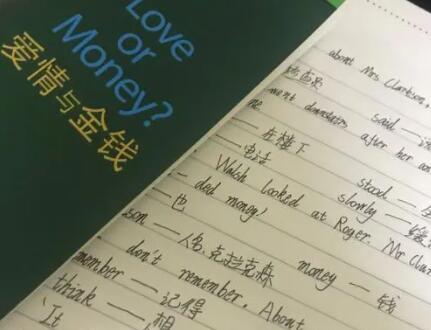 Love
or
Money?
爱情与金钱
about Mrs Clarkson,
said —
went downstairs after her
me
— 在楼下 stood —
— 电话 slowly —
Walsh looked at Roger. Mr
— ded money!
— 也 money — 钱
son — 人名,克拉克森
don't remember. About
member — 记得
think — 想
It